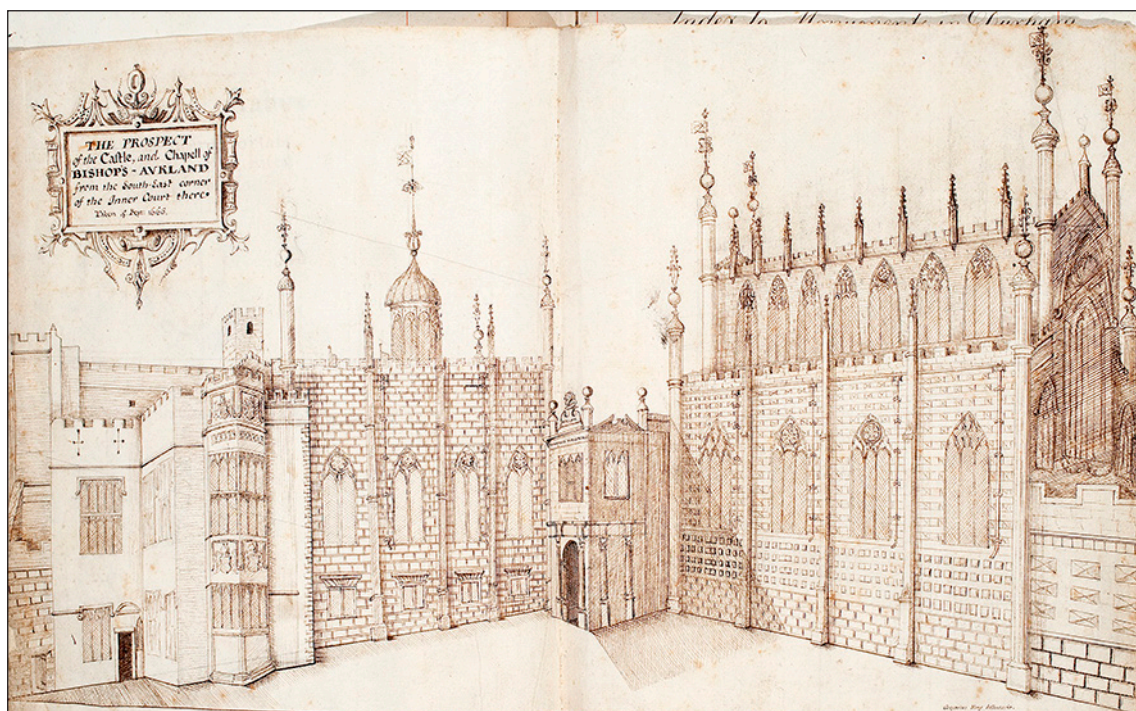 Index to Monuments in Durham
THE PROSPECT
of the Castle, and Chapell of
BISHOP'S-AVKLAND
from the South-East corner
of the Inner Court there.
Taken 4 Sept: 1666.